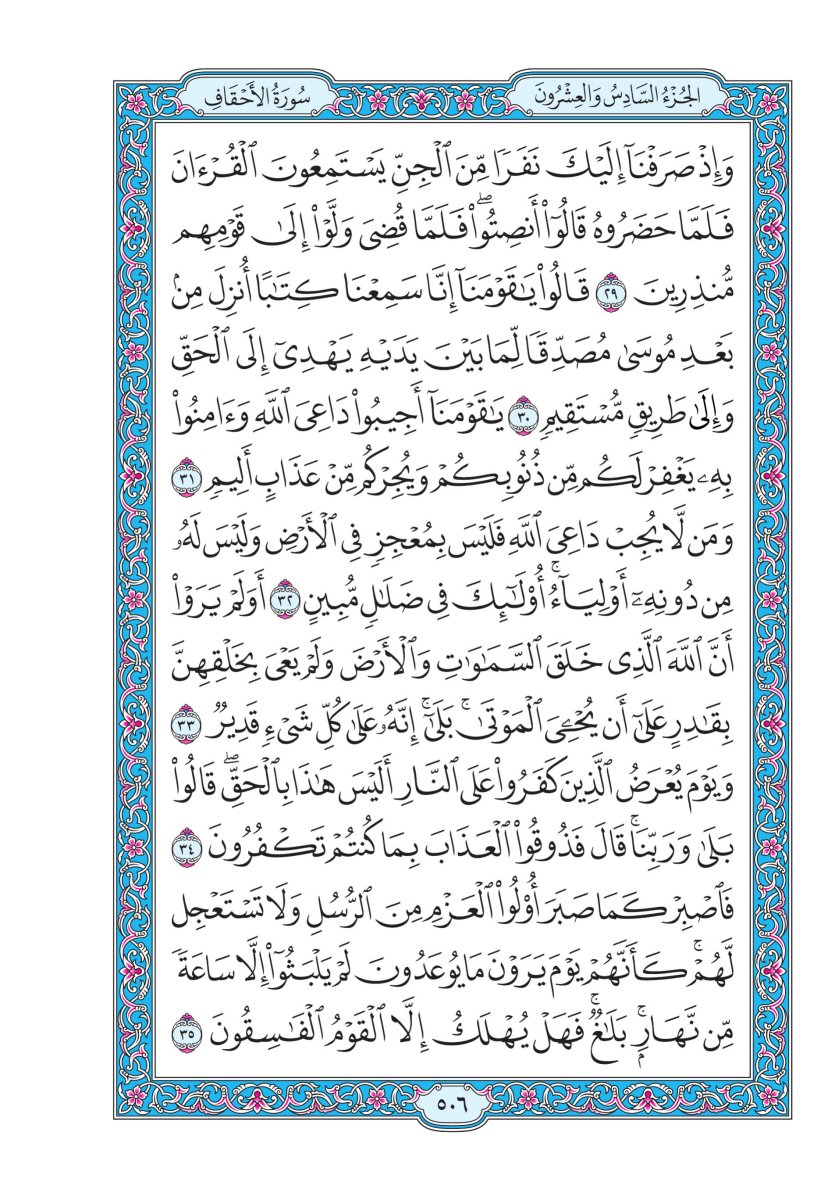 الجُزْءُ السَّادِسُ وَالعِشْرُونَ
سُورَةُ الأَحْقَافِ
وَإِذْ صَرَفْنَآ إِلَيْكَ نَفَرٗا مِّنَ ٱلْجِنِّ يَسْتَمِعُونَ ٱلْقُرْءَانَ
فَلَمَّا حَضَرُوهُ قَالُوٓاْ أَنصِتُواْۖ فَلَمَّا قُضِيَ وَلَّوْاْ إِلَىٰ قَوْمِهِم
مُّنذِرِينَ ٢٩ قَالُواْ يَٰقَوْمَنَآ إِنَّا سَمِعْنَا كِتَٰبًا أُنزِلَ مِنۢ
بَعْدِ مُوسَىٰ مُصَدِّقٗا لِّمَا بَيْنَ يَدَيْهِ يَهْدِيٓ إِلَى ٱلْحَقِّ
وَإِلَىٰ طَرِيقٖ مُّسْتَقِيمٖ ٣٠ يَٰقَوْمَنَآ أَجِيبُواْ دَاعِيَ ٱللَّهِ وَءَامِنُواْ
بِهِۦ يَغْفِرْ لَكُم مِّن ذُنُوبِكُمْ وَيُجِرْكُم مِّنْ عَذَابٍ أَلِيمٖ ٣١
وَمَن لَّا يُجِبْ دَاعِيَ ٱللَّهِ فَلَيْسَ بِمُعْجِزٖ فِي ٱلْأَرْضِ وَلَيْسَ لَهُۥ
مِن دُونِهِۦٓ أَوْلِيَآءُۚ أُوْلَٰٓئِكَ فِي ضَلَٰلٖ مُّبِينٍ ٣٢ أَوَلَمْ يَرَوْاْ
أَنَّ ٱللَّهَ ٱلَّذِي خَلَقَ ٱلسَّمَٰوَٰتِ وَٱلْأَرْضَ وَلَمْ يَعْيَ بِخَلْقِهِنَّ
بِقَٰدِرٍ عَلَىٰٓ أَن يُحْـِۧيَ ٱلْمَوْتَىٰۚ بَلَىٰٓۚ إِنَّهُۥ عَلَىٰ كُلِّ شَيْءٖ قَدِيرٞ ٣٣
وَيَوْمَ يُعْرَضُ ٱلَّذِينَ كَفَرُواْ عَلَى ٱلنَّارِ أَلَيْسَ هَٰذَا بِٱلْحَقِّۖ قَالُواْ
بَلَىٰ وَرَبِّنَاۚ قَالَ فَذُوقُواْ ٱلْعَذَابَ بِمَا كُنتُمْ تَكْفُرُونَ ٣٤
فَٱصْبِرْ كَمَا صَبَرَ أُوْلُواْ ٱلْعَزْمِ مِنَ ٱلرُّسُلِ وَلَا تَسْتَعْجِل
لَّهُمْۚ كَأَنَّهُمْ يَوْمَ يَرَوْنَ مَا يُوعَدُونَ لَمْ يَلْبَثُوٓاْ إِلَّا سَاعَةٗ
مِّن نَّهَارِۭۚ بَلَٰغٞۚ فَهَلْ يُهْلَكُ إِلَّا ٱلْقَوْمُ ٱلْفَٰسِقُونَ ٣٥
٥٠٦